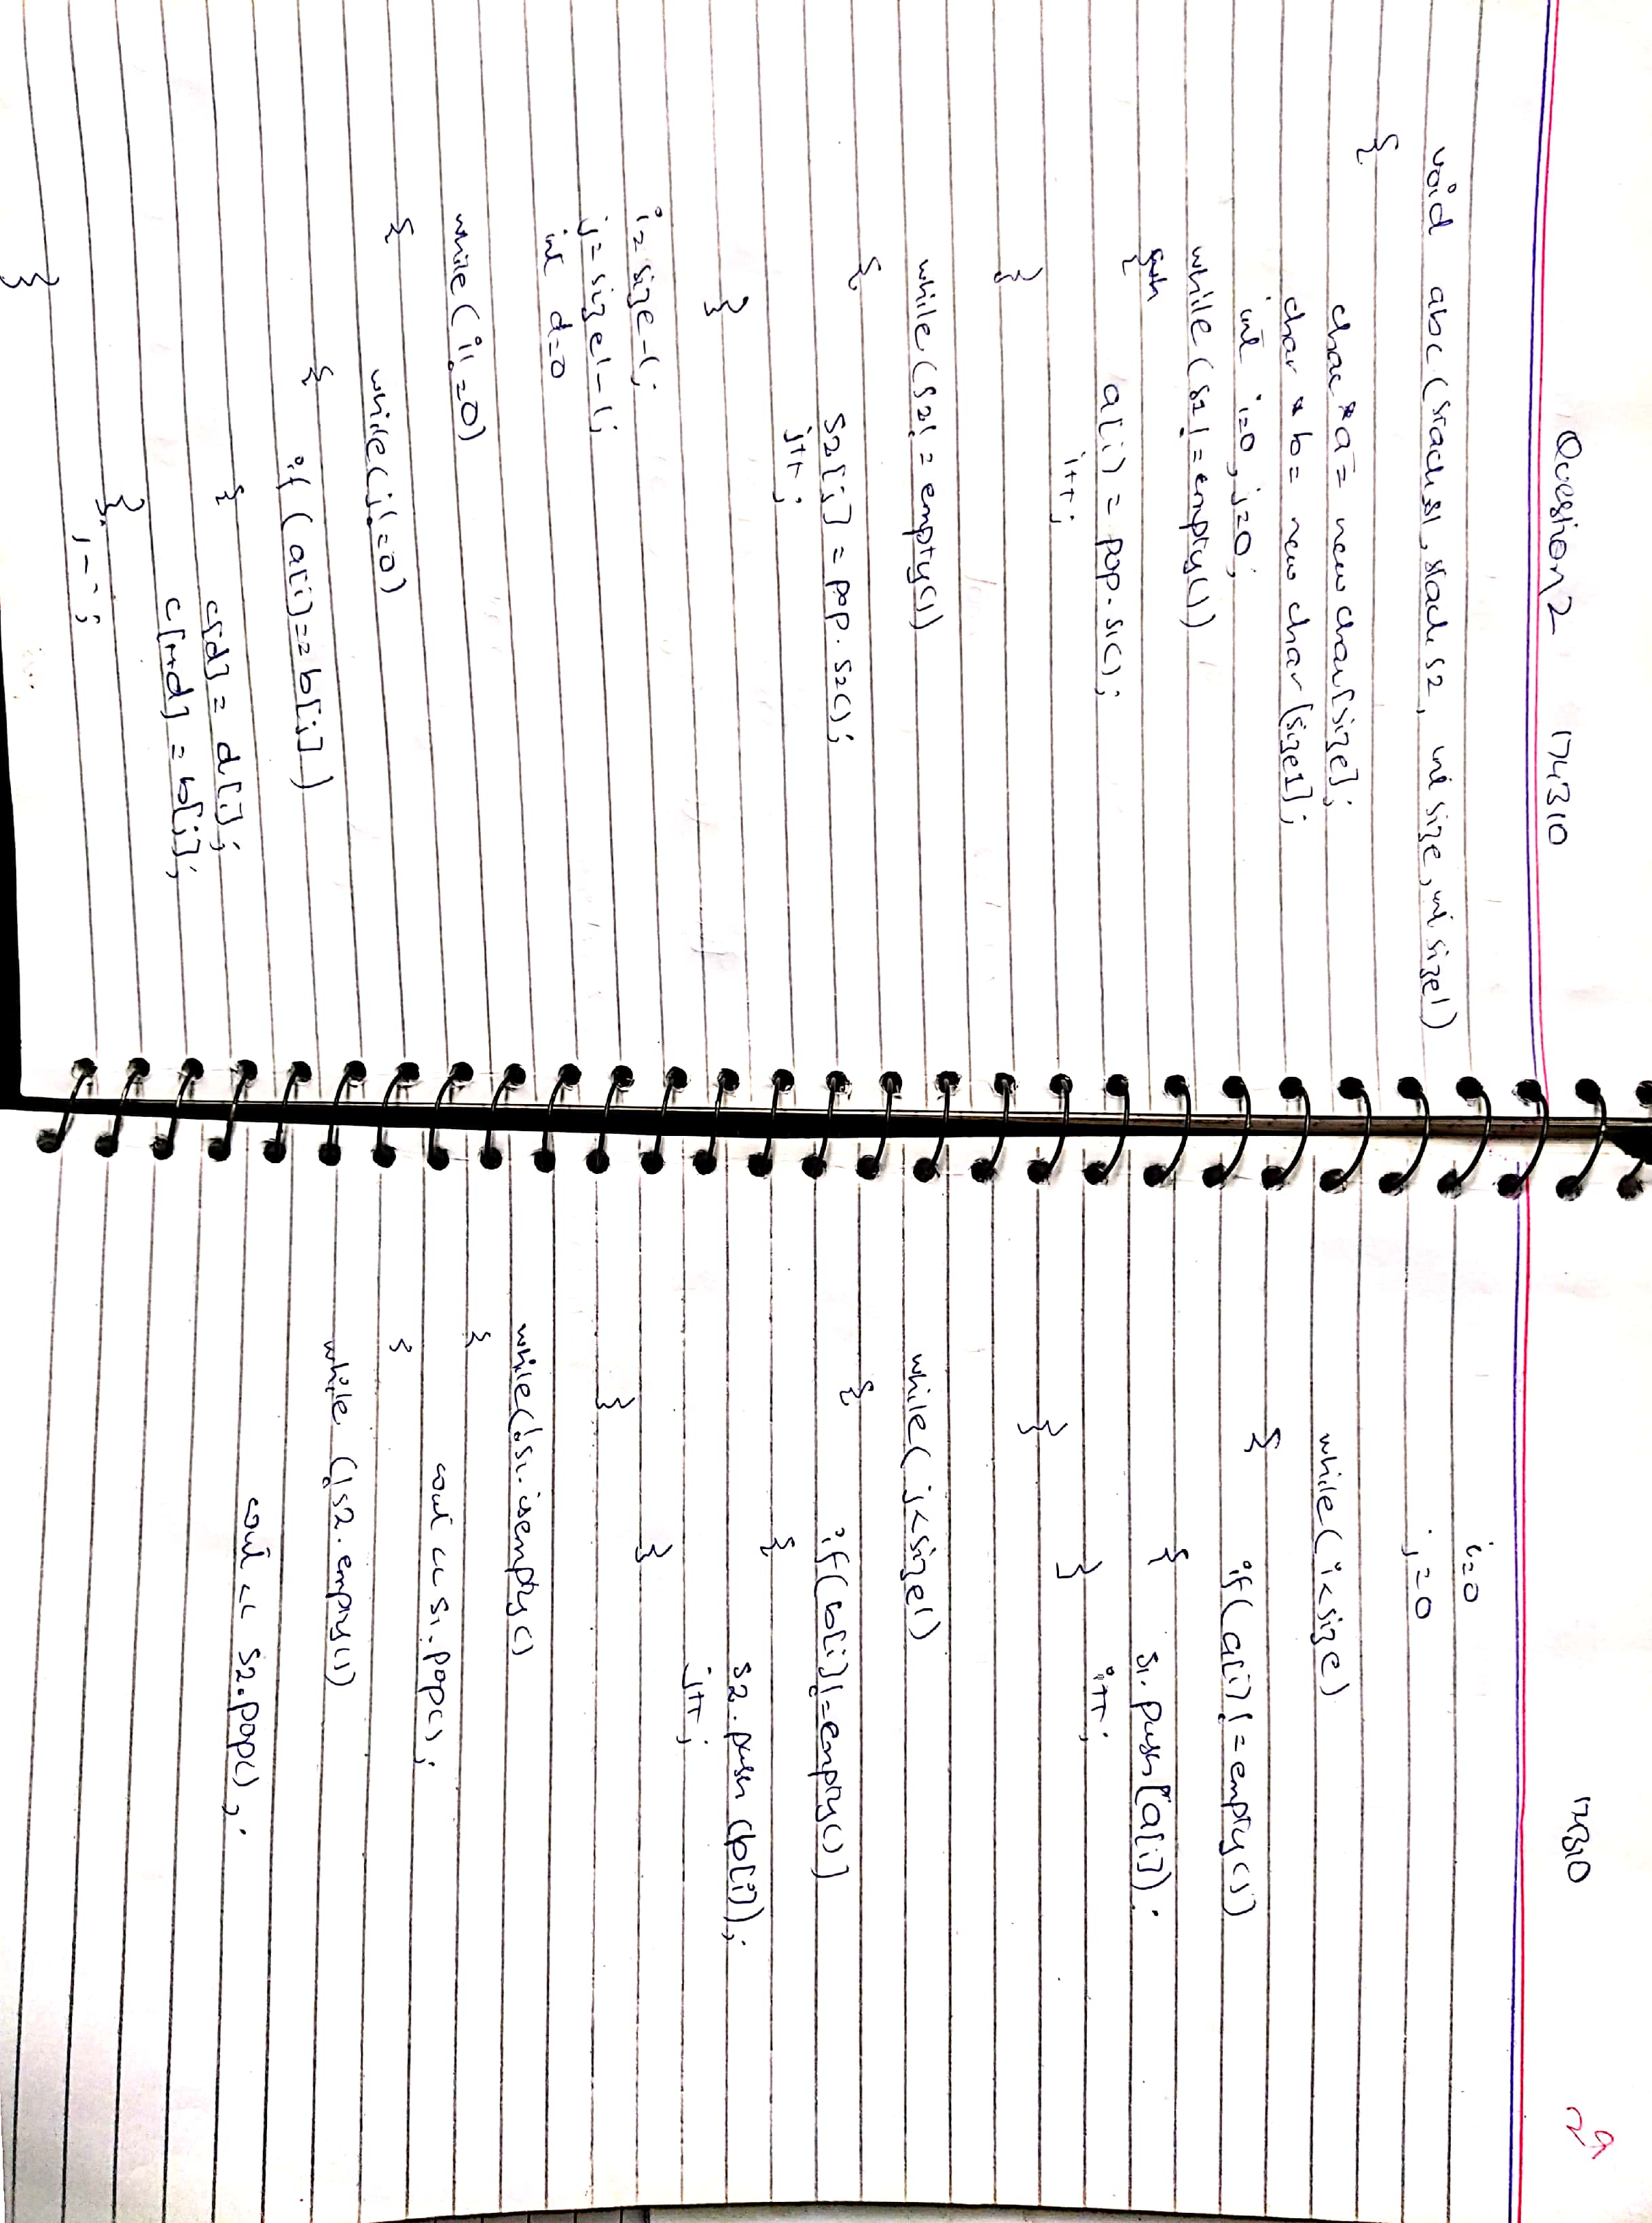 Question 2 174310
void abc (stack s1, stack s2, int size, int size1)
{
char *a = new char[size];
char * b = new char [size1];
int i=0, j=0;
while (s1 != empty())
{
a[i] = pop.s1();
i++;
}
while (s2! = empty())
{
s2[j] = pop. s2();
j++;
}
i = size-1;
j = size1-1;
int d=0
while (i! =0)
{
while (j! =0)
{
if (a[i]==b[j])
{
c[d] = d[i];
c[++d] = b[j];
}
j--;
}
174310
29
i=0
j=0
while (i<size)
{
if (a[i] ! = empty())
{
s1. push[a[i]);
i++;
}
}
while( j<size1)
{
if( b[i]!=empty()]
{
s2. push (b[i]);
j++;
}
}
while(!s1. isempty()
{
cout << s1.pop();
}
while (!s2. empty())
cout << s2.pop();